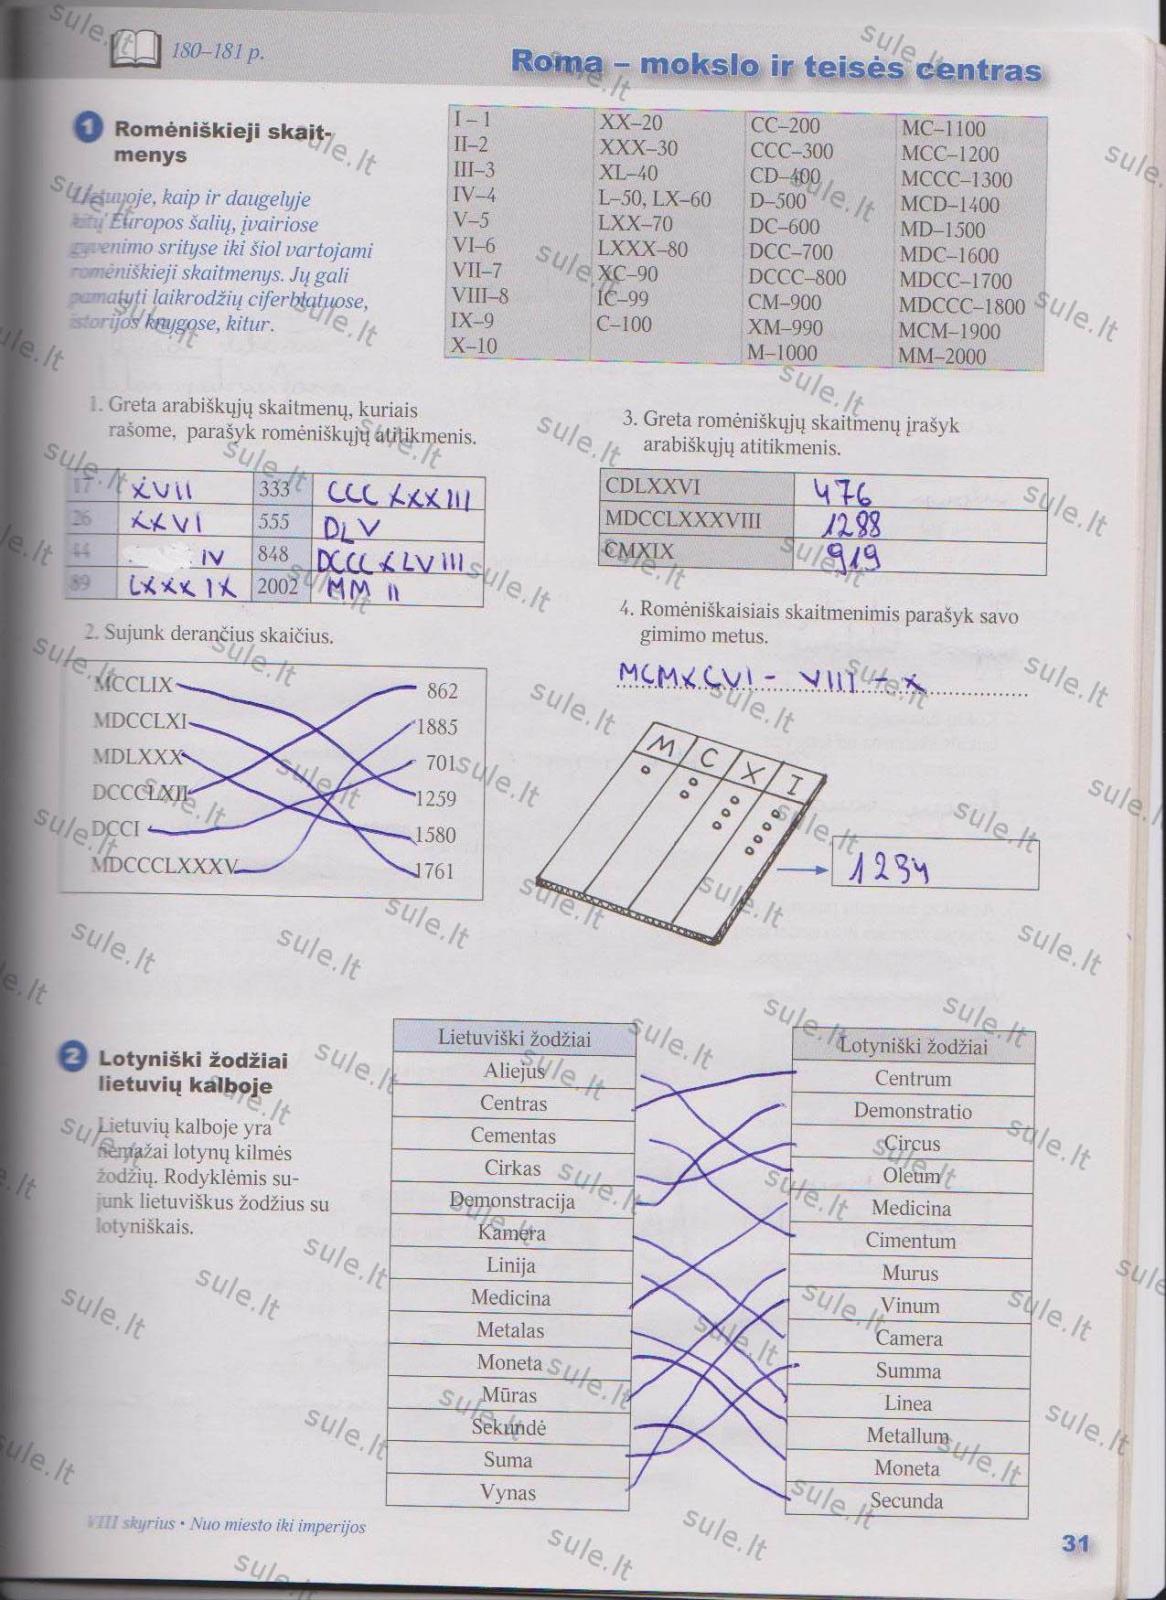 180–181 p.
Roma – mokslo ir teisės centras
1 Romėniškieji skait-
menys
Lietuvoje, kaip ir daugelyje
kitų Europos šalių, įvairiose
gyvenimo srityse iki šiol vartojami
romėniškieji skaitmenys. Jų gali
pamatyti laikrodžių ciferblatuose,
istorijos knygose, kitur.
I – 1 XX–20 CC–200 MC–1100
II–2 XXX–30 CCC–300 MCC–1200
III–3 XL–40 CD–400 MCCC–1300
IV–4 L–50, LX–60 D–500 MCD–1400
V–5 LXX–70 DC–600 MD–1500
VI–6 LXXX–80 DCC–700 MDC–1600
VII–7 XC–90 DCCC–800 MDCC–1700
VIII–8 IC–99 CM–900 MDCCC–1800
IX–9 C–100 XM–990 MCM–1900
X–10 M–1000 MM–2000
1. Greta arabiškųjų skaitmenų, kuriais
rašome, parašyk romėniškųjų atitikmenis.
17 XVII 333 CCCXXXIII
26 XXVI 555 DLV
44 IV 848 DCCCXLVIII
89 LXXXIX 2002 MMII
2. Sujunk derančius skaičius.
MCCLIX 862
MDCCLXI 1885
MDLXXX 701
DCCCLXII 1259
DCCI 1580
MDCCCLXXXV 1761
3. Greta romėniškųjų skaitmenų įrašyk
arabiškųjų atitikmenis.
CDLXXVI 476
MDCCLXXXVIII 1288
CMXIX 919
4. Romėniškaisiais skaitmenimis parašyk savo
gimimo metus.
MCMXCVI - VIII - X
M C X I
1234
2 Lotyniški žodžiai
lietuvių kalboje
Lietuvių kalboje yra
nemažai lotynų kilmės
žodžių. Rodyklėmis su-
junk lietuviškus žodžius su
lotyniškais.
Lietuviški žodžiai
Aliejus
Centras
Cementas
Cirkas
Demonstracija
Kamera
Linija
Medicina
Metalas
Moneta
Mūras
Sekundė
Suma
Vynas
Lotyniški žodžiai
Centrum
Demonstratio
Circus
Oleum
Medicina
Cimentum
Murus
Vinum
Camera
Summa
Linea
Metallum
Moneta
Secunda
VIII skyrius • Nuo miesto iki imperijos
31
sule.lt